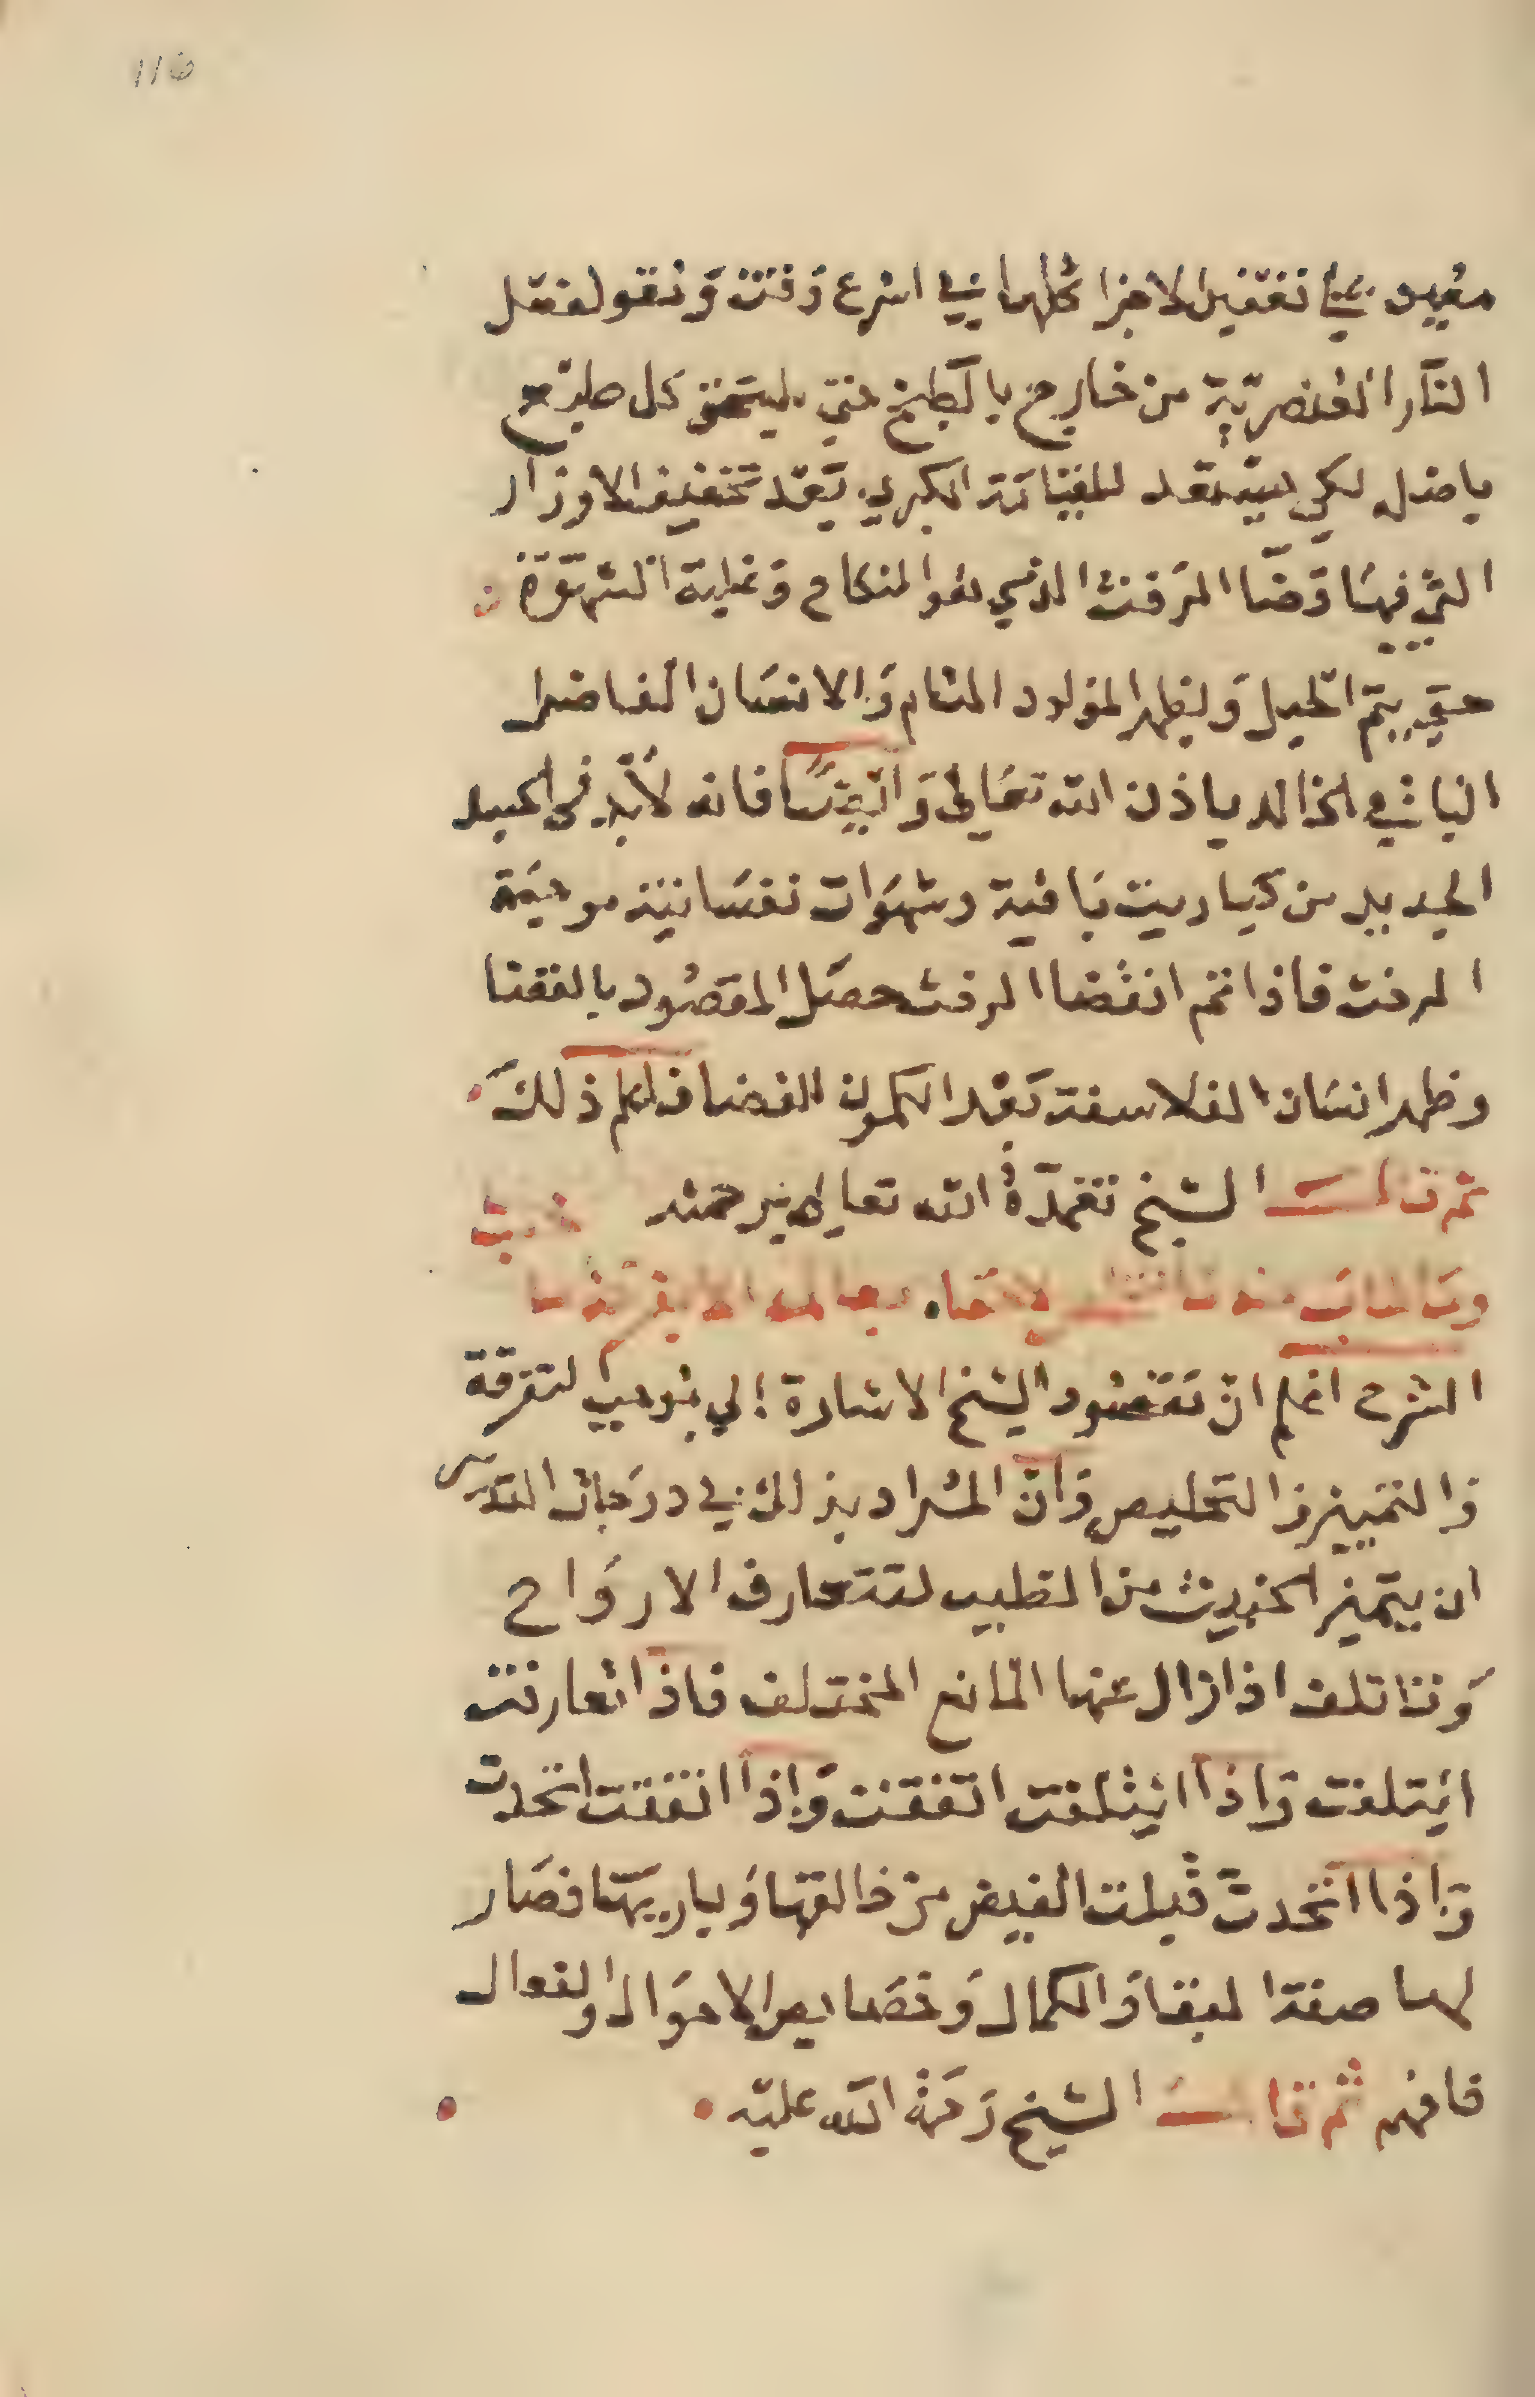 116
معين علي تفتيل الاجزا كلها في اسرع وقت وتقول فعل
النار العنصرية من خارج بالطبخ حتي يلتحق كل
باصله لكي يستعد للقيامة الكبري بعد تخفيف الاوزار
التي فيها وقضا الرفث الذي هو النكاح وغلبة الشهوة
حتي يتم الحيل ويظهر المولود التام والانسان الفاضل
الناشي الخالد باذن الله تعالى وايضا فانه لابد في الجسد
الجديد من كباريت باقية وشهوات نفسانية موجبة
الرفث فاذا تم انقضا الرفث حصل المقصود بالقضا
وظهر انسان الفلاسفة بعد الكمون القضا فاعلم ذلك
ثم قال الشيخ تغمده الله تعالى برحمته
الشرح اعلم ان مقصود الشيخ الاشارة الي توجيب لتفرقة
والتمييز والتخليص وان المراد بذلك في درجات التدبير
ان يتميز الخبيث من الطيب لتتعارف الارواح
وتتاتلف اذا زال عنها المانع المختلف فاذا تعارفت
ايتلفت واذا ايتلفت اتفقت واذا اتفقت اتحدت
واذا اتحدت قبلت الفيض من خالقها وباريها فصار
لها صفة البقا والكمال وخصايص الاحوال والفعال
فافهم ثم قال الشيخ رحمة الله عليه